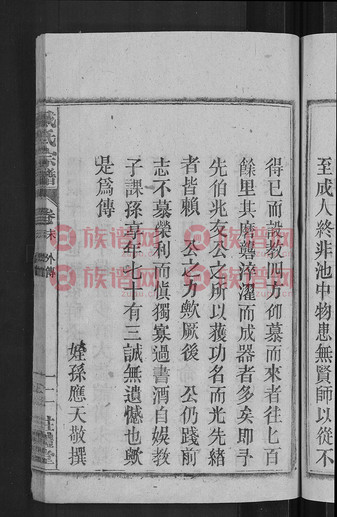 至成人終非池中物患無賢師以從不
得已而設教四方卻慕而來者往七百
餘里其磨礲淬濯而成器者多矣即予
先伯兆友公之所以獲功名而光先緒
者皆賴 公之力歟厥後 公仍踐前
志不慕榮利而慎獨寡過書酒自娛教
子課孫享年七十有三誠無遺憾也歟
是爲傳
姪孫應天敬撰
氏宗譜
卷末
外傳
族谱网
族谱网
族谱网
族谱网
族谱网
族谱网